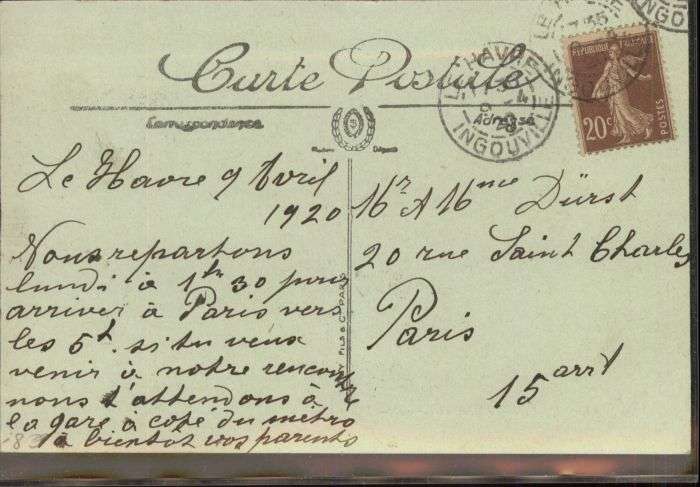 Carte Postale
Correspondance
Adresse
LE HAVRE
INGOUVILLE
REPUBLIQUE FRANÇAISE
20c
POSTES
Le Havre 9 Avril
1920
Nous repartons
lundi à 1h 30 pour
arriver à Paris vers
les 5h. si tu veux
venir à notre rencontre
nous t'attendons à
la gare à coté du métro
à bientot vos parents
Mr & Mme Dürst
20 rue Saint Charles
Paris
15 arrt
FILS & Cie PARIS